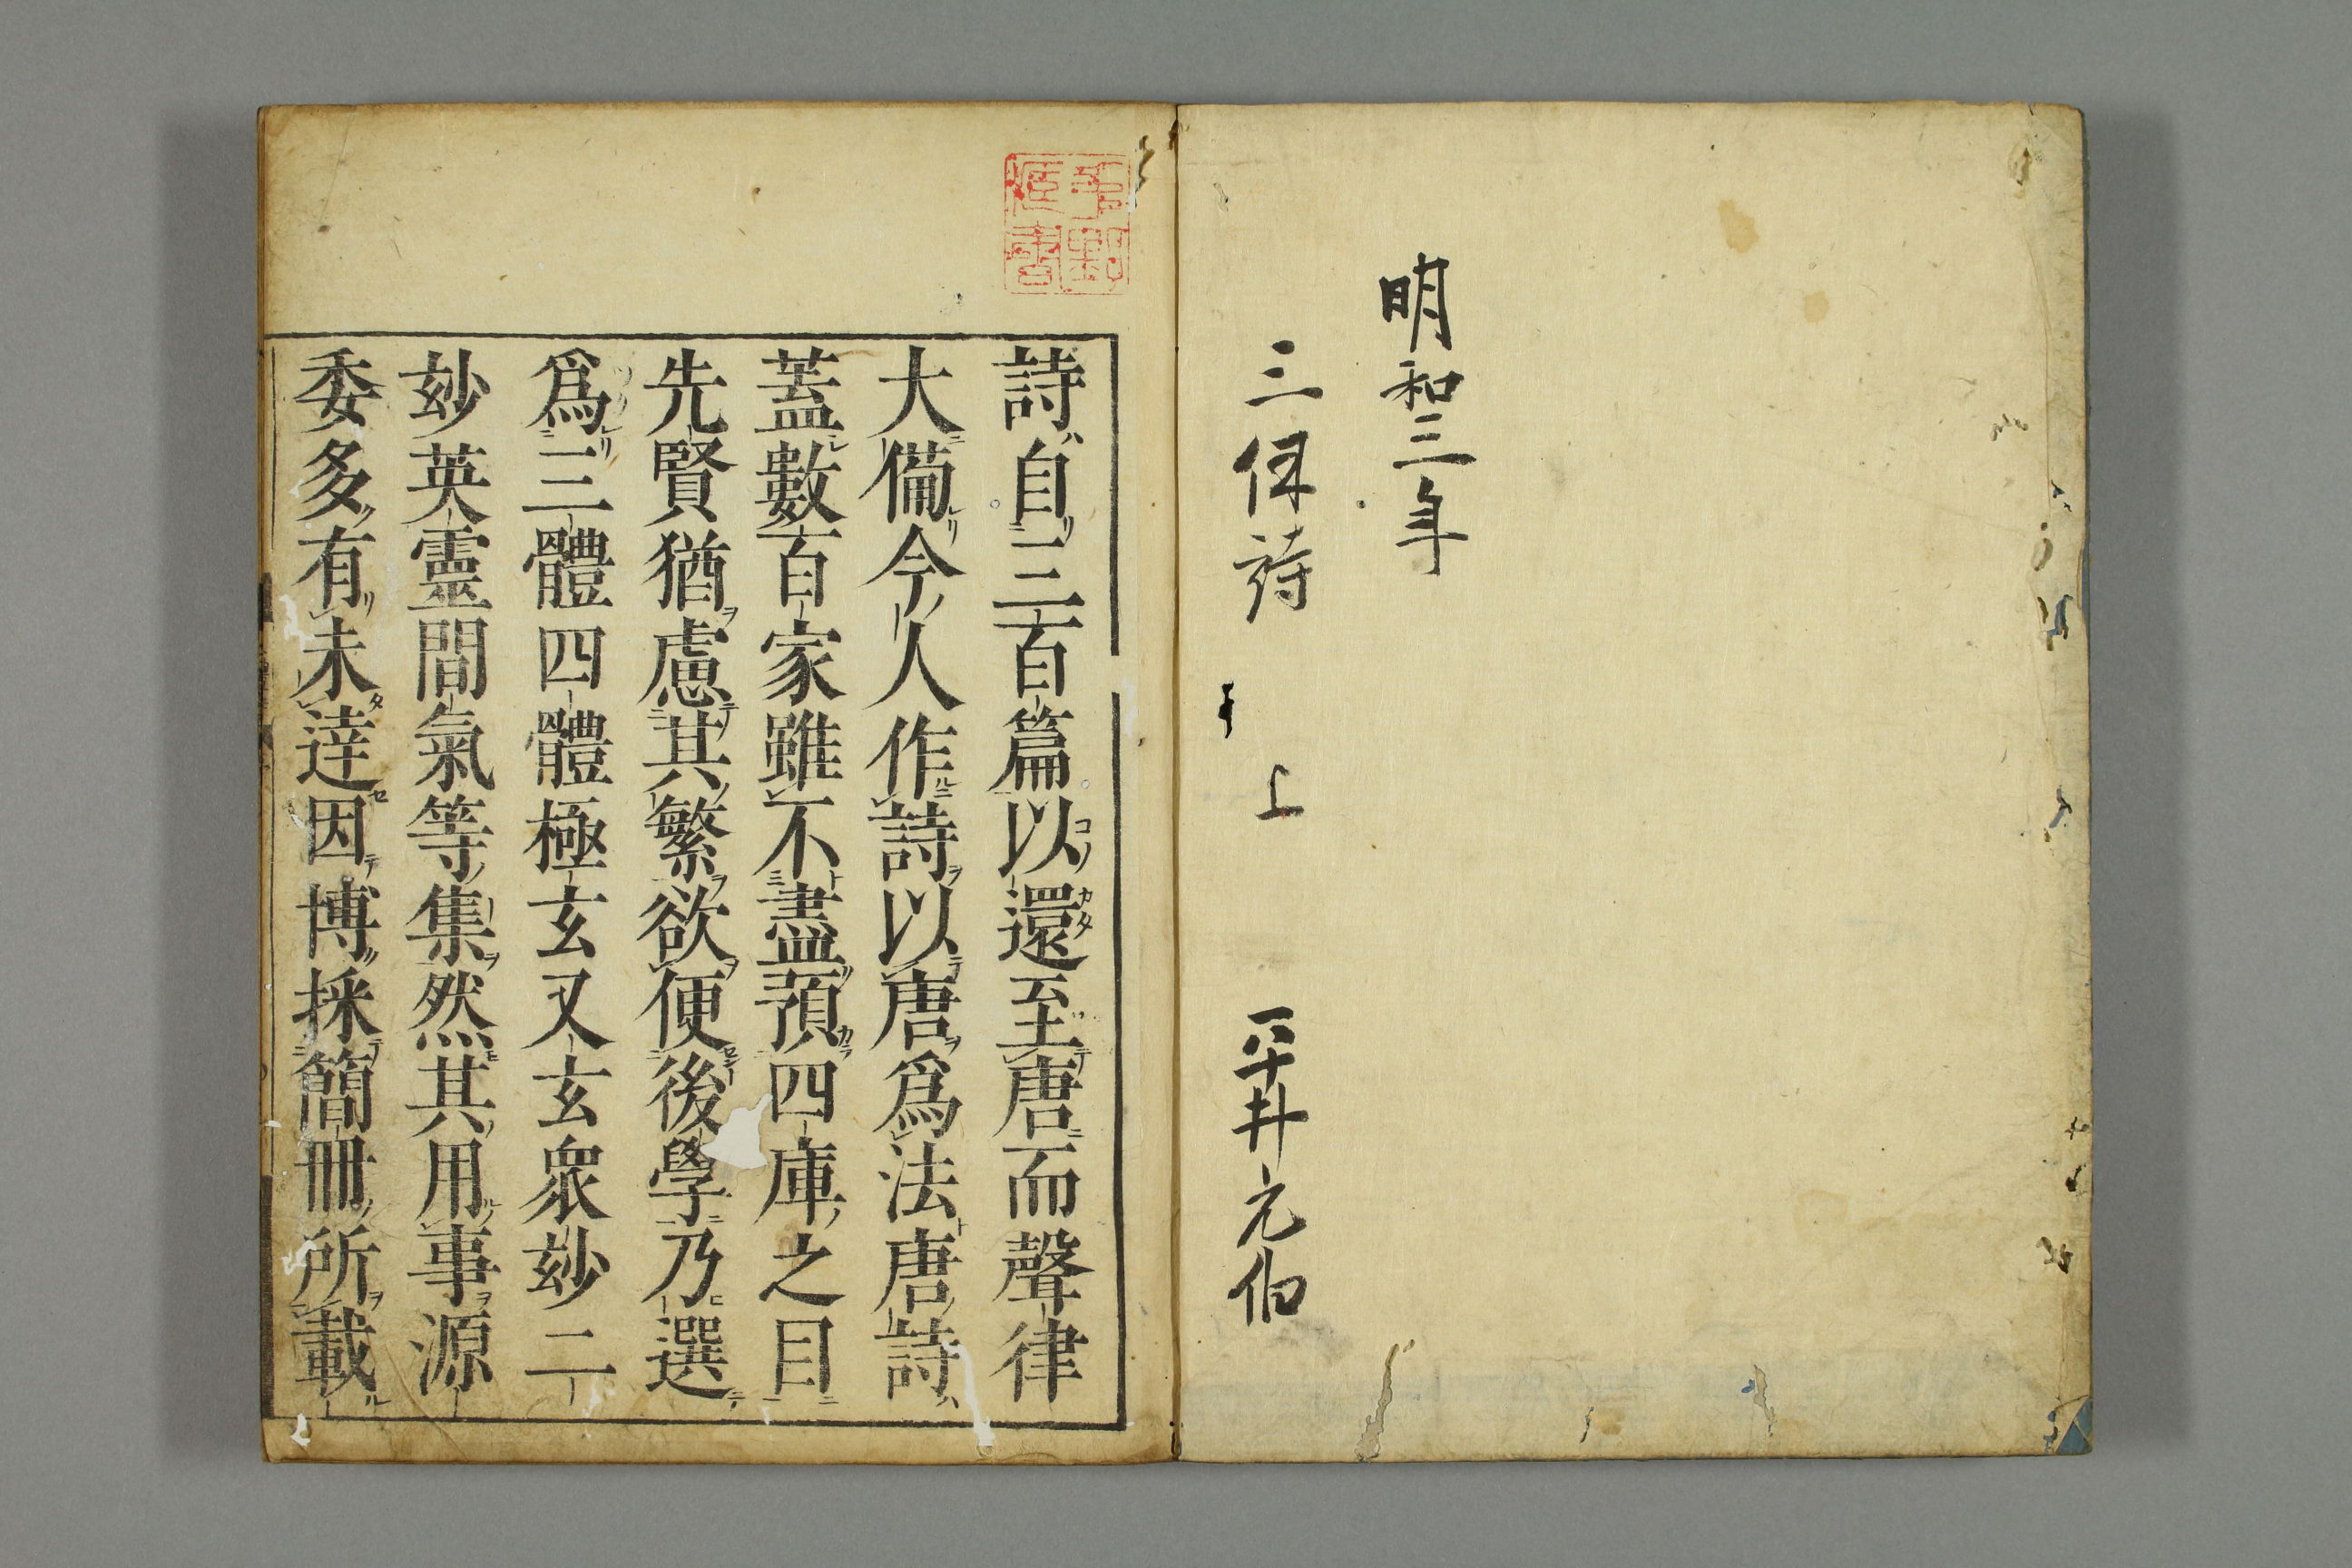 明和三年
三体詩 上 平井元伯
詩自三百篇以還至唐而聲律
大備今人作詩以唐爲法唐詩
蓋數百家雖不盡預四庫之目
先賢猶慮其繁欲便後學乃選
爲三體四體極玄又玄衆玅二
玅英靈間氣等集然其用事源
委多有未達因博採簡冊所載